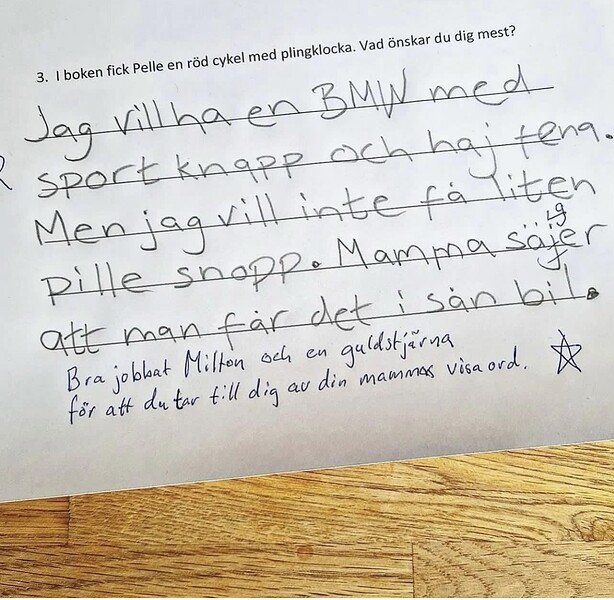 3. I boken fick Pelle en röd cykel med plingklocka. Vad önskar du dig mest?
Jag vill ha en BMW med
sport knapp och haj fena.
Men jag vill inte få liten
pille snopp. Mamma säjer
att man får det i sån bil.
Bra jobbat Milton och en guldstjärna
för att du tar till dig av din mammas visa ord.